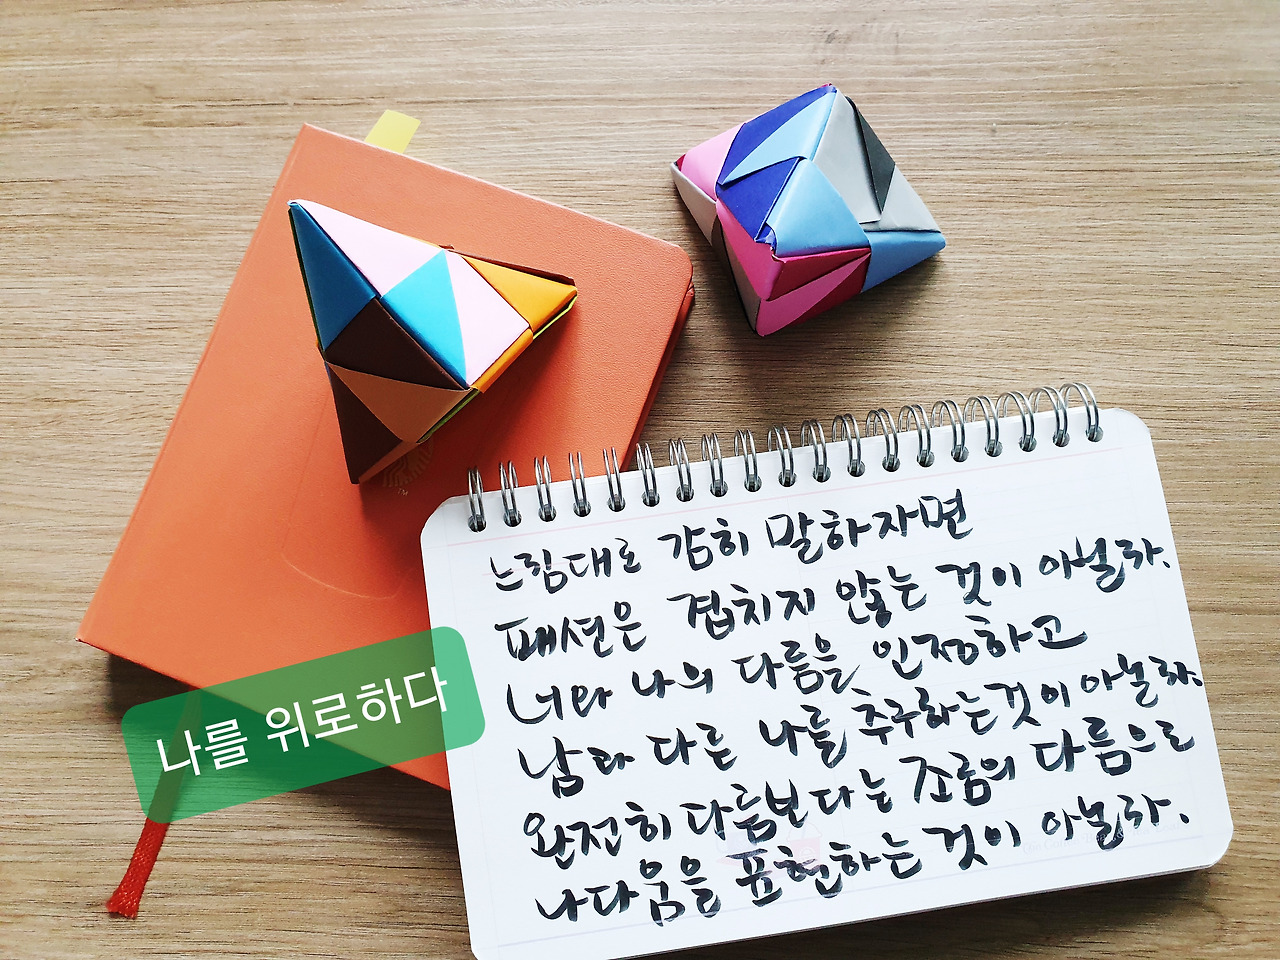 느림대로 감히 말하자면
패션은 겹치지 않는 것이 아닐라.
너와 나의 다름을 인정하고
남과 다른 나를 추구하는것이 아닐라.
완전히 다름보다는 조금의 다름으로
나다움을 표현하는 것이 아닐라.
나를 위로하다